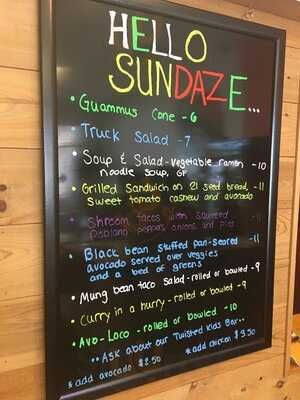 HELLO
SUNDAZE...
• Guammus Cone - 6
• Truck Salad - 7
• Soup & Salad - vegetable ramen - 10
noodle soup, GF
• Grilled Sandwich on 21 seed bread, - 11
sweet tomato cashew and avocado
• Shroom tacos with squeeed
Poblano peppers onions and - 11
• Black bean stuffed pan-seared - 11
avocado served over veggies
and a bed of greens
• Mung bean taco salad - rolled or bowled - 9
• Curry in a hurry - rolled or bowled - 9
• Avo-Loco - rolled or bowled - 10
•• ASK about our Twisted Kids Box••
* add avocado $2.50 * add chicken $3.50